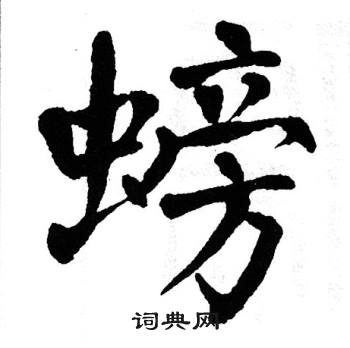 螃
词典网